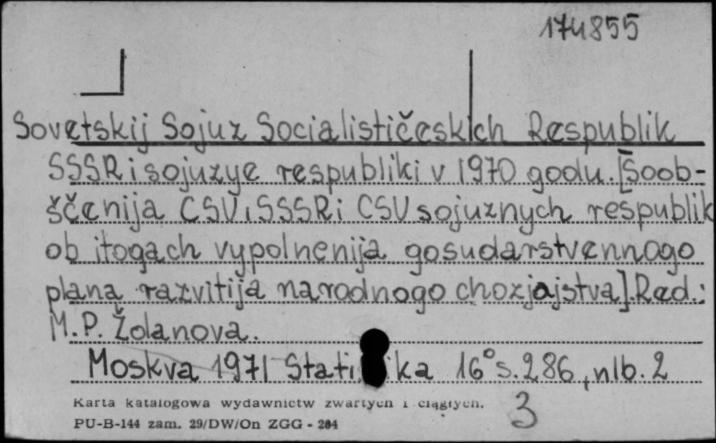 174855
Sovetskij Sojuz Socialističeskich Respublik
SSSR i sojuzye respubliki v 1970 godu. [Soob-
ščenija CSU, SSSR i CSU sojuznych respublik
ob itogach vypolnenija gosudarstvennogo
plana razvitija narodnogo chozjajstva]. Red.:
M.P. Ždanova.
Moskva 1971 16° s. 286, nlb. 2
Karta katalogowa wydawnictw zwartych i ciągłych.
3
PU-B-144 zam. 29/DW/On ZGG - 284